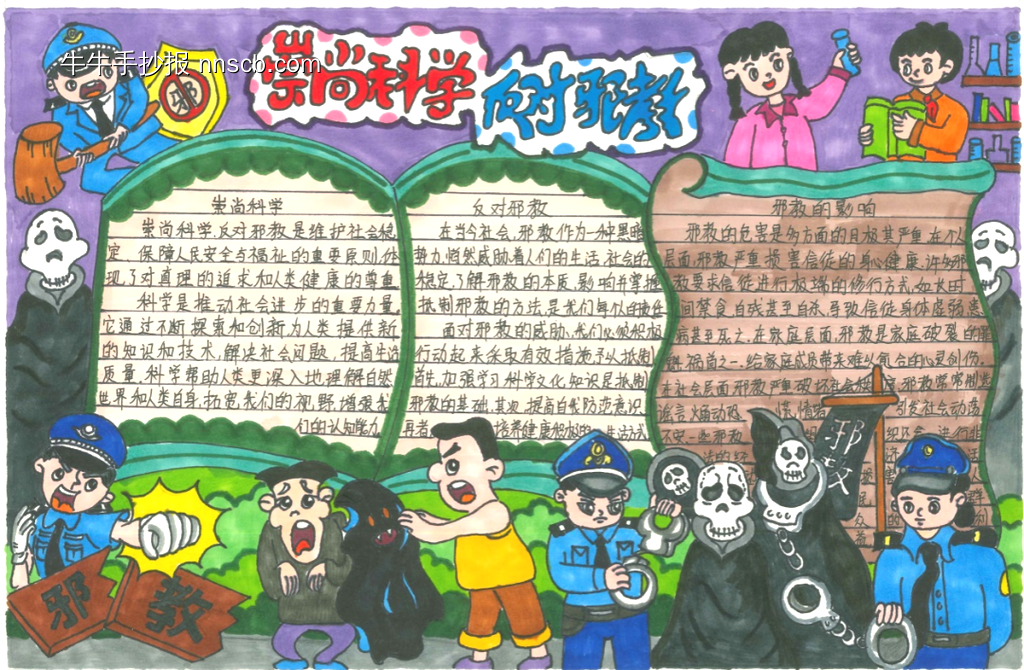 牛牛手抄报 nnscb.com
崇尚科学
反对邪教
邪
崇尚科学
崇尚科学,反对邪教是维护社会稳
定、保障人民安全与福祉的重要原则,体
现了对真理的追求和人类健康的尊重
科学是推动社会进步的重要力量,
它通过不断探索和创新为人类提供新
的知识和技术,解决社会问题,提高生活
质量,科学帮助人类更深入地理解自然
世界和人类自身,拓宽我们的视野,增强我
们的认知能力
反对邪教
在当今社会,邪教作为一种黑暗
势力,悄然威胁着人们的生活,社会的
稳定,了解邪教的本质,影响并掌握
抵制邪教的方法,是我们每个人的责任
面对邪教的威胁,我们必须积极
行动起来采取有效措施予以抵制
首先,加强学习科学文化知识是抵制
邪教的基础,其次,提高自我防范意识,
再者 培养健康积极的生活方式
邪教的影响
邪教的危害是多方面的且极其严重,在个人
层面,邪教严重损害信徒的身心健康,许多邪
教要求信徒进行极端的修行方式,如长时
间禁食,自残甚至自杀,导致信徒身体虚弱,患
病甚至死亡,在家庭层面,邪教是家庭破裂的罪
魁祸首之一,给家庭成员带来难以愈合的心灵创伤,
在社会层面,邪教严重破坏社会 邪教常常制造
谣言,煽动恐慌,情绪 引发社会动荡
不安,一些邪教 组织还会进行非
法的经
邪教
邪教